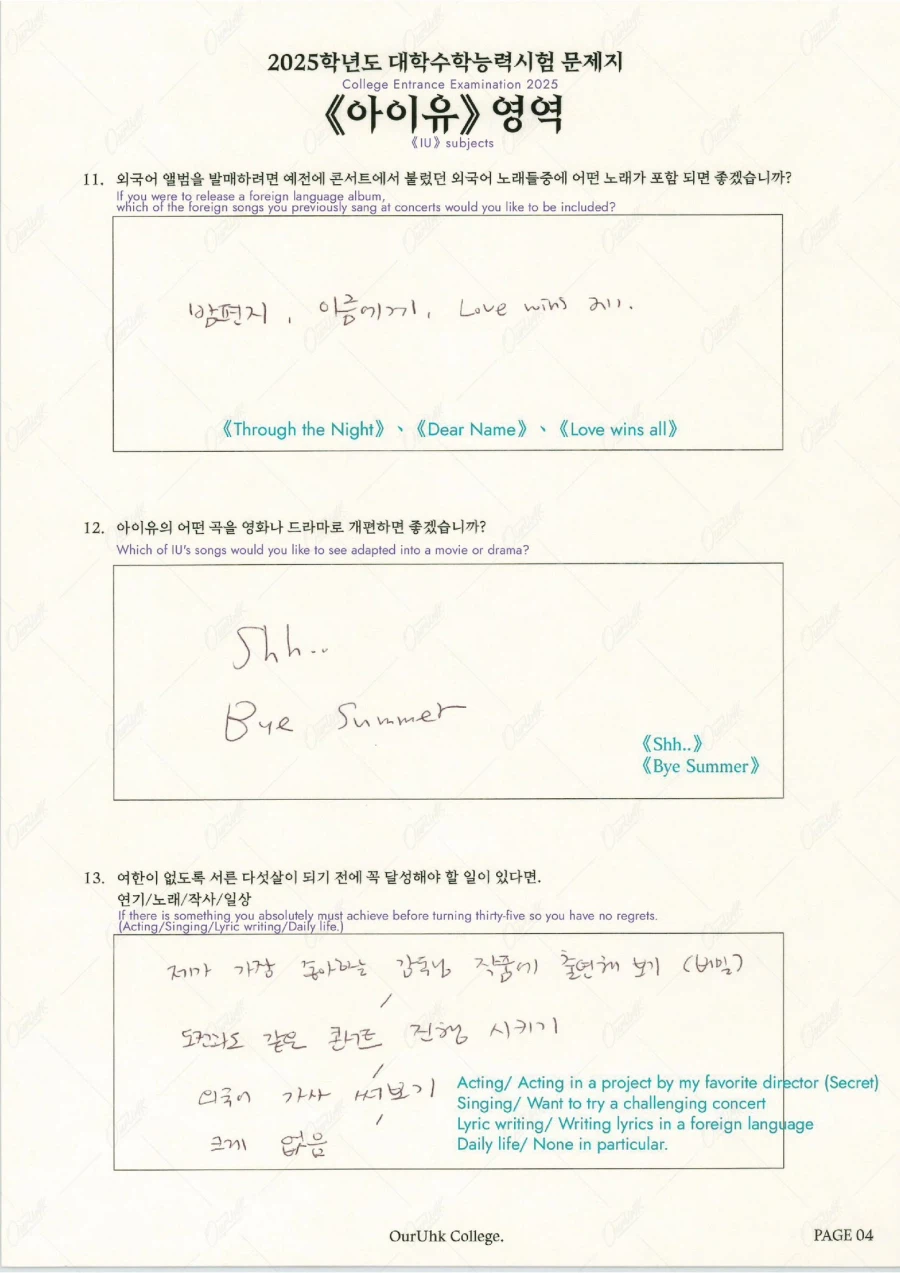 2025학년도 대학수학능력시험 문제지
College Entrance Examination 2025
《아이유》 영역
《IU》 subjects
11. 외국어 앨범을 발매하려면 예전에 콘서트에서 불렀던 외국어 노래들중에 어떤 노래가 포함 되면 좋겠습니까?
If you were to release a foreign language album,
which of the foreign songs you previously sang at concerts would you like to be included?
밤편지, 이름에게, Love wins all.
《Through the Night》、《Dear Name》、《Love wins all》
12. 아이유의 어떤 곡을 영화나 드라마로 개편하면 좋겠습니까?
Which of IU's songs would you like to see adapted into a movie or drama?
Shh..
Bye Summer
《Shh..》
《Bye Summer》
13. 여한이 없도록 서른 다섯살이 되기 전에 꼭 달성해야 할 일이 있다면.
연기/노래/작사/일상
If there is something you absolutely must achieve before turning thirty-five so you have no regrets.
(Acting/Singing/Lyric writing/Daily life.)
제가 가장 좋아하는 감독님 작품에 출연해 보기 (비밀)
/
도전과도 같은 콘서트 진행 시키기
/
외국어 가사 써보기
/
크게 없음
Acting/ Acting in a project by my favorite director (Secret)
Singing/ Want to try a challenging concert
Lyric writing/ Writing lyrics in a foreign language
Daily life/ None in particular.
OurUhk College.
PAGE 04